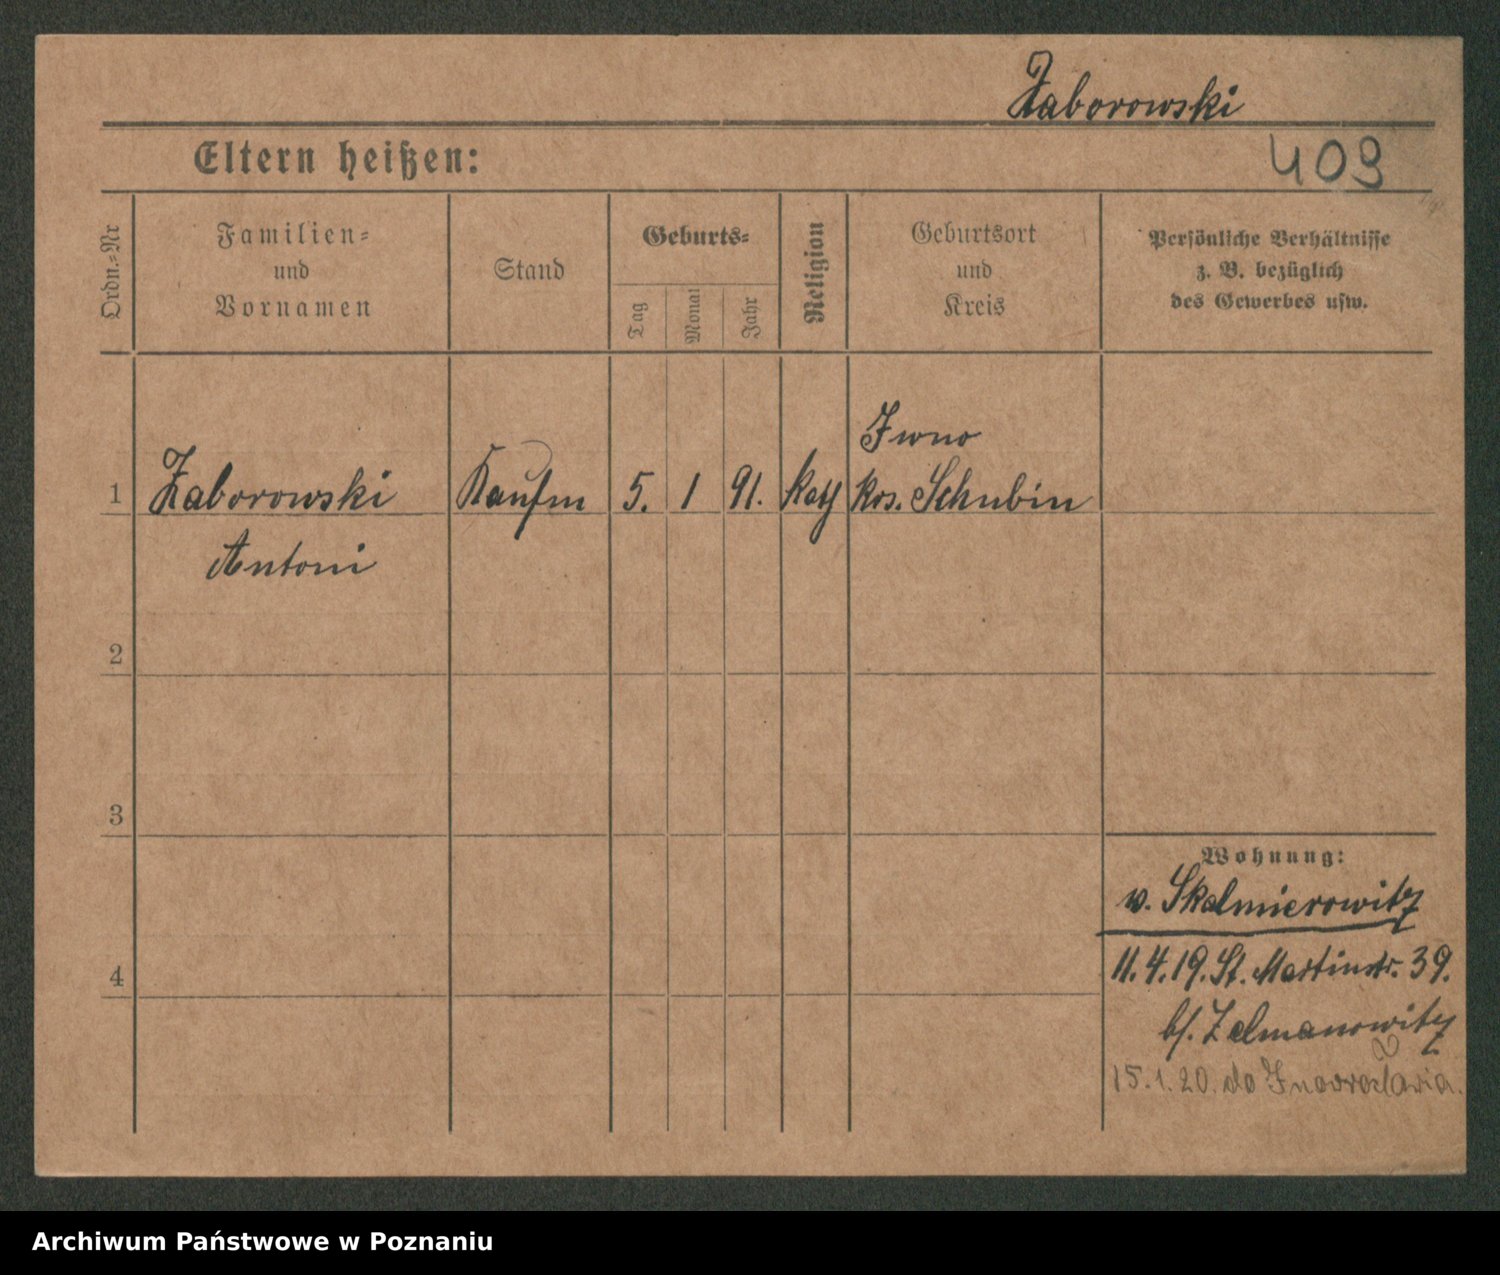 Zaborowski
Eltern heißen:
409
Ordn.-Nr
Familien-
und
Vornamen
Stand
Geburts-
Tag
Monat
Jahr
Religion
Geburtsort
und
Kreis
Persönliche Verhältnisse
z. B. bezüglich
des Gewerbes usw.
Iwno
1 Zaborowski Kaufm 5. 1 91. kath Krs. Schubin
Antoni
2
3
Wohnung:
v. Skalmierowitz
4
11.4.19. St. Martinstr. 39.
b/. Zelmanowitz
15.1.20. do Inowrocławia.
Archiwum Państwowe w Poznaniu